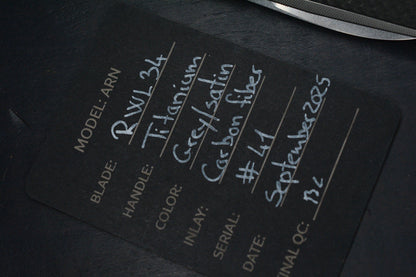 MODEL: ARN
BLADE: RWL 34
HANDLE: Titanium
COLOR: Grey/satin
INLAY: Carbon fiber
SERIAL: #41
DATE: September 2025
INAL QC: BC